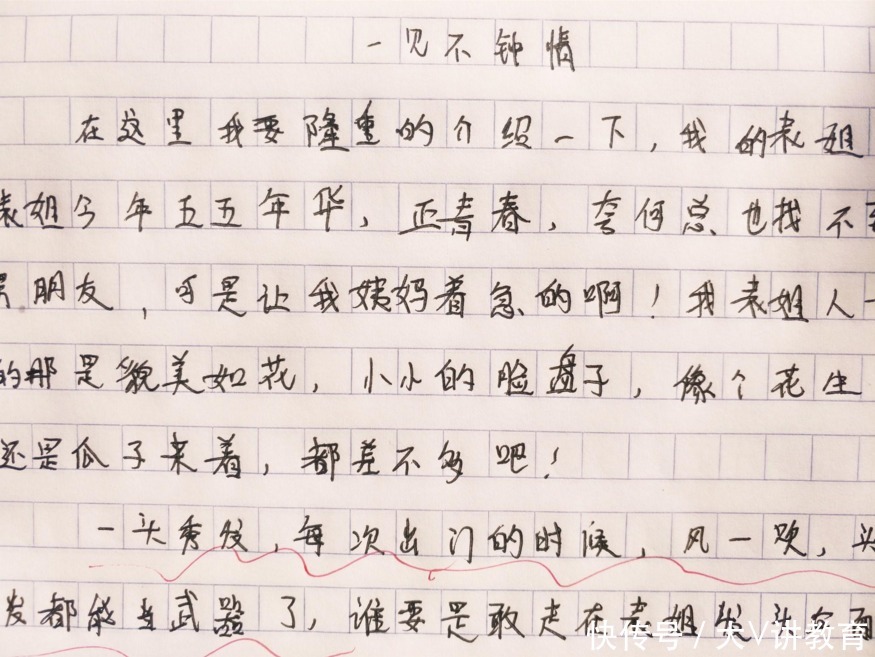 一见不钟情
在这里我要隆重的介绍一下，我的表姐
表姐今年五五年华，正青春，奈何总也找不到
男朋友，可是让我姨妈着急的啊！我表姐人
的那是貌美如花，小小的脸盘子，像个花生
还是瓜子来着，都差不多吧！
一头秀发，每次出门的时候，风一吹，头
发都能当武器了，谁要是敢走在表姐
快传号/大V讲教育